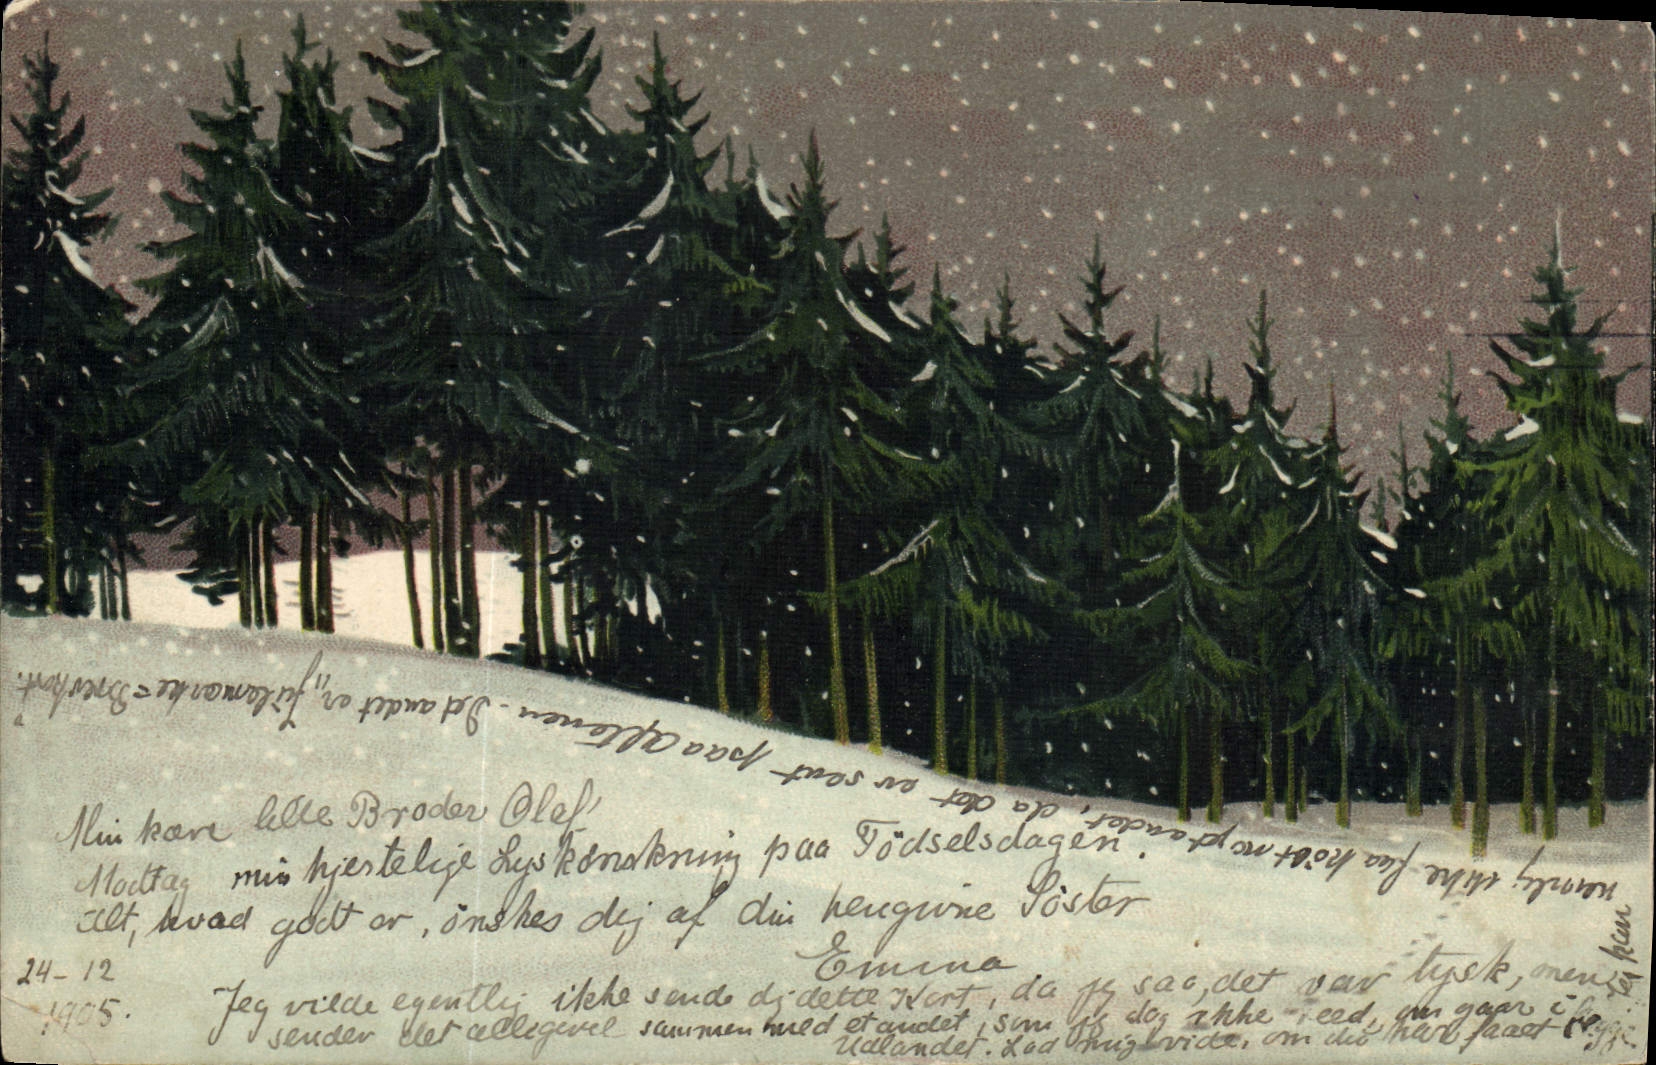 Min kære lille Broder Olaf!
Modtag min hjertelige Lyskönskning paa Födselsdagen.
Alt, hvad godt er, önskes dig af din hengivne Söster
Emma
24-12
1905.
Jeg vilde egentlig ikke sende dig dette Kort, da jeg saa, det var tysk, men
sender det allegevel sammen med et andet, som jeg dog ikke veed, om gaar i
Udlandet. Lad mig vide, om du har faaet begge.
Jeg kan
nemlig ikke faa köbt noget andet, da det er sent paa Aftenen. Det andet er „Julemærke=Brevkort."